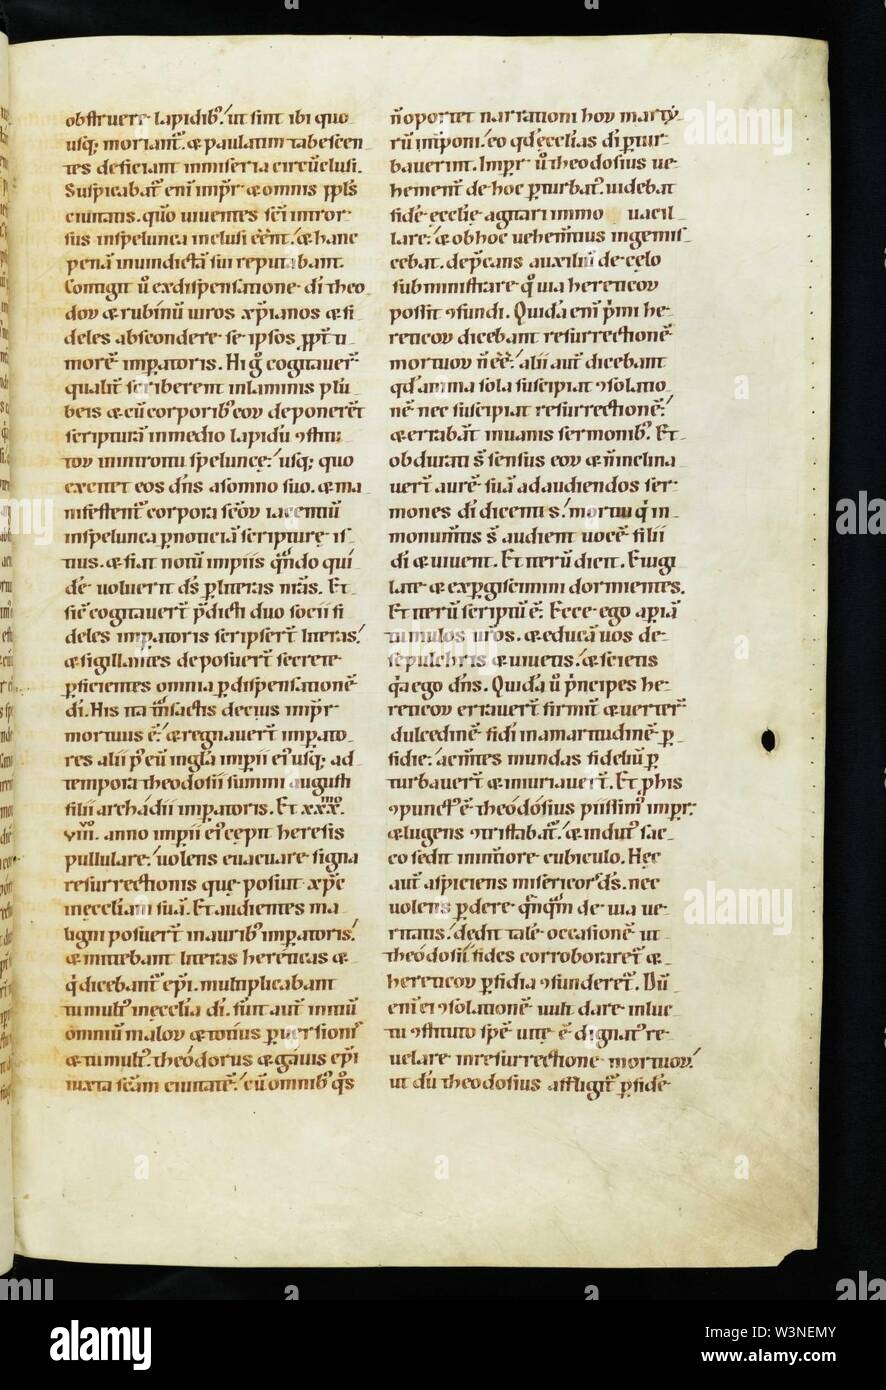 obstruere lapidib⁹. ut sint ibi quo
usq; moriant̃. & paulatim tabescen
tes deficiant in miseria circũclusi.
Suspicabat̃ eni impr̃ & omnis ppl̃s
ciuitatis. quõ uiuentes sc̃i intror
sus inspelunca inclusi eẽnt. & hanc
penã inuindictã sui reputabant.
Contigit ũ exdispensatione di theo
doꝝ & rubinũ uiros xp̃ianos & fi
deles abscondere se ipsos ꝓpt̃ ti
morẽ impatoris. Hi g̃ cogitauer̃
qualit̃ scriberent inlaminis plũ
beis & cũ corporib⁹ eoꝝ deponerẽt
scripturã inmedio lapidũ ꝯstru
toꝝ inintroitu spelunce. usq; quo
excitet eos dñs asomno suo. & ma
nifestent̃ corpora sc̃oꝝ iacentiũ
inspelunca ꝓnoticiã scripture is
tius. & fiat notũ impiis qñdo qui
dẽ uoluerit ds̃ ꝑ literas nr̃as. Et
sic cogitauer̃t p̃dicti duo socii fi
deles impatoris scripser̃t literas.
& sigillantes deposuer̃t secrete
ꝑficientes omnia ꝑ dispensationẽ
di. His ita tñsactis decius impr̃
mortuus ẽ. & regnauer̃t impato
res alii p⁹ eũ ingl̃a impii ei⁹ usq; ad
tempora theodosii summi augusti
filii archadii impatoris. Et xxx.
viii. anno impii ei⁹ cepit heresis
pullulare. uolens euacuare signa
resurrectionis que posuit xp̃c
inecclam suã. Et audientes ma
ligni posuer̃t inaurib⁹ impatoris.
& mittebant literas hereticas &
q̃ dicebant̃ ep̃i. multiplicabant
tumult⁹ inecclia di. sunt aut̃ initiũ
omniũ maloꝝ & totius ꝑuersionis
& tumult⁹. theodorus & gauis ep̃i
iuxta sc̃am ciuitatẽ. cũ omnib⁹ q̃s
ñ oportet narrationi hoꝝ marty
rũ imponi. eo qd̃ ecclias di ꝑtur
bauerint. Impr̃ ũ theodosius ue
hement̃ de hoc ꝑturbat⁹. uidebat
fidẽ ecclie agitari immo uacil
lare. & ob hoc uehemtius ingemis
cebat. dep̃cans auxiliũ de celo
subministrare q̃ uia hereticoꝝ
possit ꝯfundi. Quidã eni p̃mi he
reticoꝝ dicebant resurrectionẽ
mortuoꝝ ñ eẽ. alii aut̃ dicebant
qd̃ anima sola suscipiat ꝯsolatio
nẽ nec suscipiat resurrectionẽ.
& errabãt inuanis sermonib⁹. Et
obdurati s̃ sensus eoꝝ & ñ inclina
uer̃t aurẽ suã adaudiendos ser
mones di dicentis. mortui q̃ in
monumtis s̃ audient uocẽ filii
di & uiuent. Et iterũ dicit. Euigi
late & expgiscimini dormientes.
Et iterũ scriptũ ẽ. Ecce ego apiã
tumulos uros. & educã uos de
sepulchris & uiuetis. & scietis
q̃a ego dñs. Quidã ũ p̃ncipes he
reticoꝝ errauer̃t firmit̃ & uerter̃
dulcedinẽ fidi inamaritudinẽ ꝑ
fidie. ac m̃tes mundas fideliũ ꝑ
turbauer̃t & iniuriauer̃t. Et ꝑ his
ꝯpunct⁹ ẽ theodosius piissim⁹ impr̃.
& lugens ꝯtristabat̃. & indut⁹ sac
co sedit inintiore cubiculo. Hec
aut̃ aspiciens misericors ds̃. nec
uolens ꝑdere qñqm de uia ue
ritatis. dedit talẽ occasionẽ ut
theodosii fides corroboraret̃ &
hereticoꝝ ꝑfidia ꝯfunderet̃. Dũ
eni ei ꝯsolationẽ uult dare inluc
tu ꝯstituto spẽ uite ẽ dignat⁹ re
uelare inresurrectione mortuoꝝ.
ut dũ theodosius affligit̃ ꝑ fidẽ
alamy
Image ID: W3NEMY
www.alamy.com